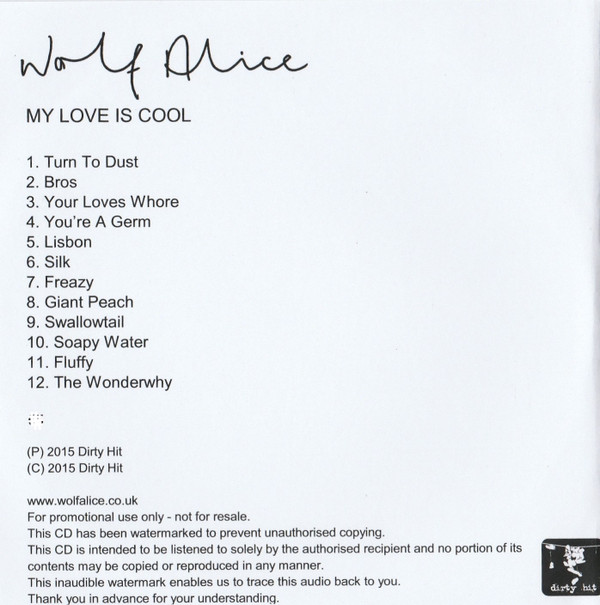 Wolf Alice
MY LOVE IS COOL
1. Turn To Dust
2. Bros
3. Your Loves Whore
4. You're A Germ
5. Lisbon
6. Silk
7. Freazy
8. Giant Peach
9. Swallowtail
10. Soapy Water
11. Fluffy
12. The Wonderwhy
(P) 2015 Dirty Hit
(C) 2015 Dirty Hit
www.wolfalice.co.uk
For promotional use only - not for resale.
This CD has been watermarked to prevent unauthorised copying.
This CD is intended to be listened to solely by the authorised recipient and no portion of its
contents may be copied or reproduced in any manner.
This inaudible watermark enables us to trace this audio back to you.
Thank you in advance for your understanding.
dirty hit